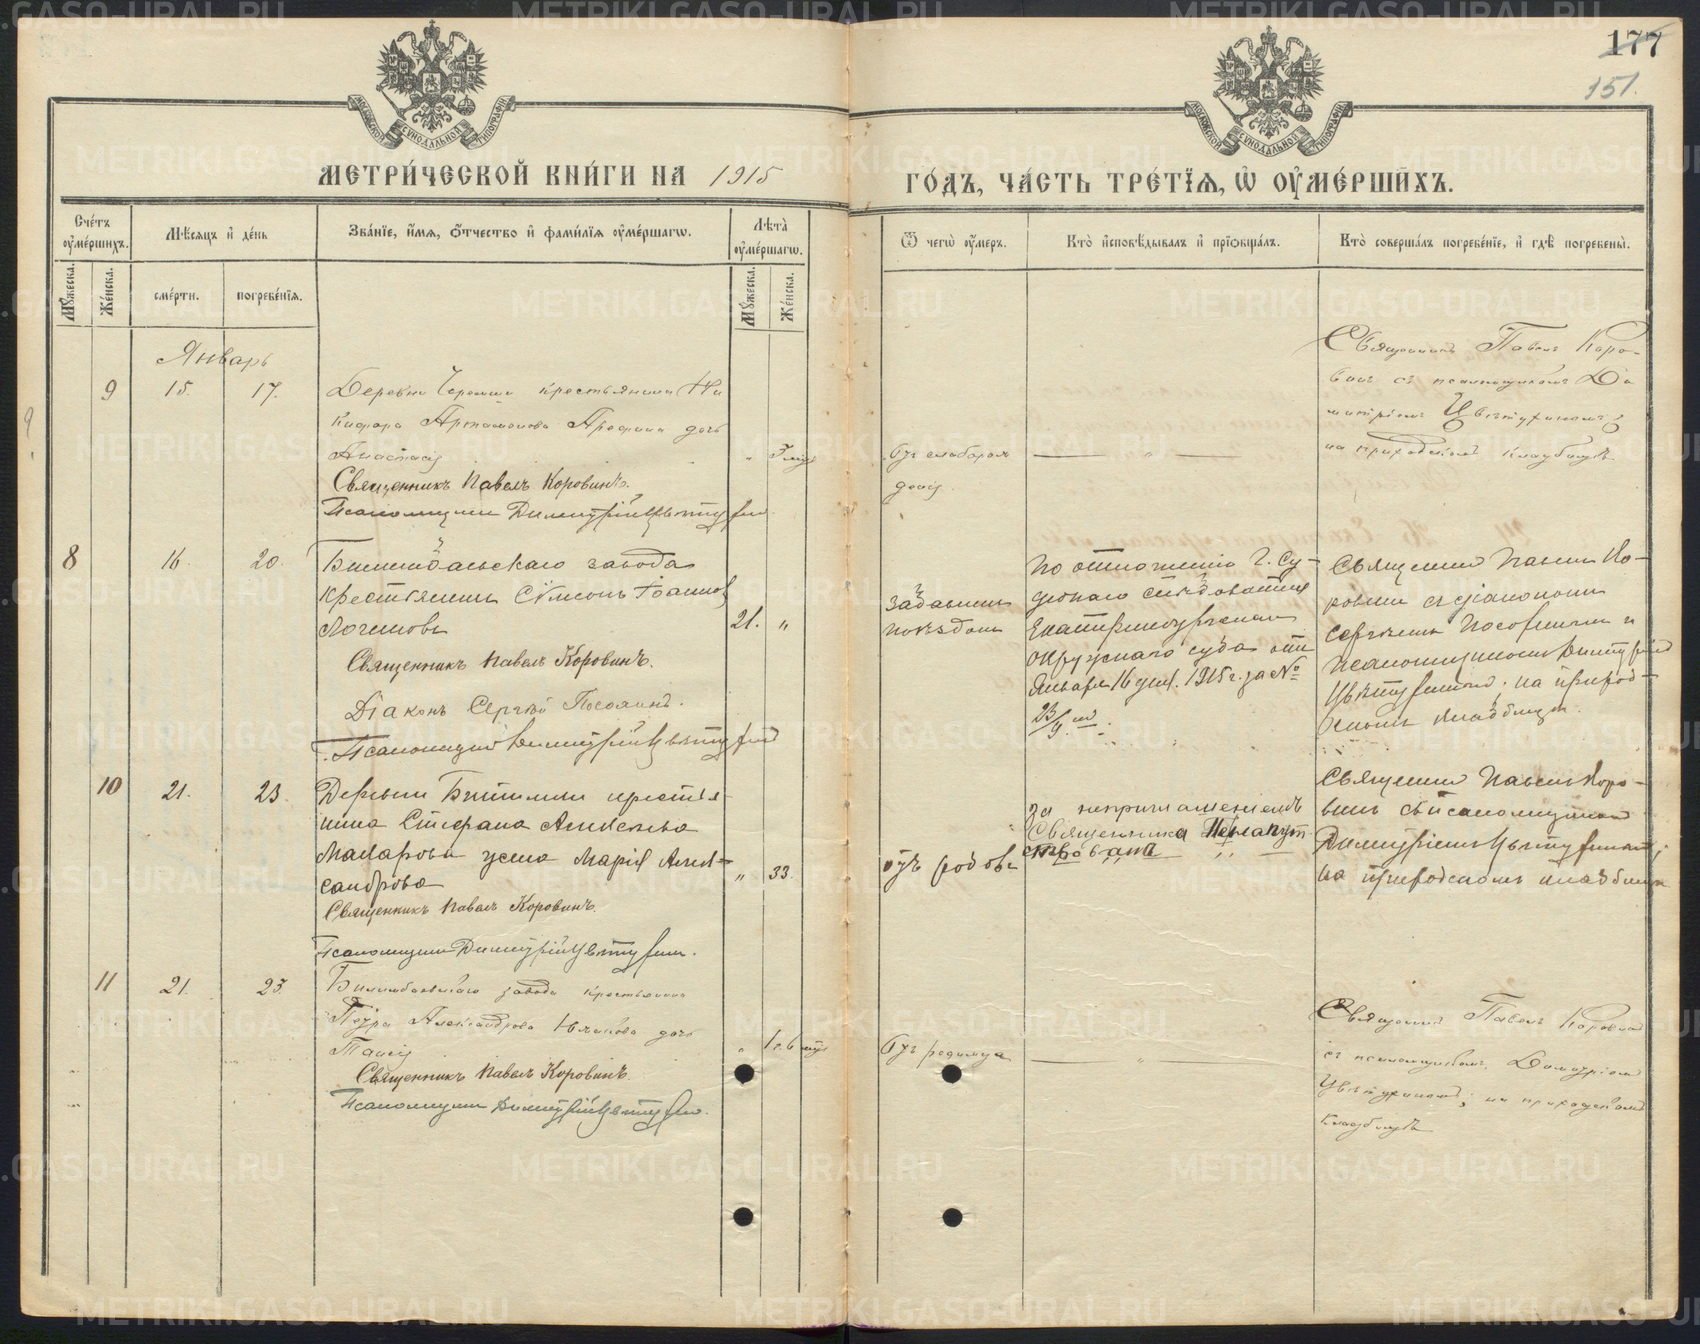 177
151.
МЕТРИ́ЧЕСКОЙ КНИ́ГИ НА 1915
ГО́ДЪ, ЧА́СТЬ ТРЕ́ТІЯ, Ѿ ОУ҆МЕ́РШИХЪ.
Сче́тъ оу҆ме́ршихъ.
Мꙋ́жеска.
Же́нска.
Мѣ́сяцъ и҆ де́нь
сме́рти.
погребе́нїя.
Зва́нїе, и҆́мя, ѻ҆́тчество и҆ фами́лїя оу҆ме́ршагѡ.
Лѣ́та оу҆ме́ршагѡ.
Мꙋ́жеска.
Же́нска.
Ѿ чегѡ̀ оу҆́меръ.
Кто̀ и҆сповѣ́дывалъ и҆ прїѡбща́лъ.
Кто̀ соверша́лъ погребе́нїе, и҆ гдѣ̀ погребены̀.
Январь
9
15.
17.
Деревни Черемши крестьянина Ни
кифора Артамонова дочь
Анастасія
Священникъ Павелъ Коровинъ.
Псаломщикъ Димитрій Цвѣтухин
отъ слабораж
денія
Священникъ Павелъ Коро-
винъ съ псаломщикомъ Ди
митріемъ Цвѣтухинымъ;
на приходскомъ кладбищѣ
8
16.
20.
Билимбаевскаго завода
крестьянинъ Сѷмеонъ Іоанновъ
Логиновъ
21.
"
Священникъ Павелъ Коровинъ.
Діаконъ Сергій
Псаломщикъ Димитрій Цвѣтухин
Задавленъ
поѣздомъ
По отношенію Г. Су-
дебнаго слѣдователя
Екатеринбургскаго
окружнаго суда отъ
Января 16 дня. 1915 г. за №
Священникъ Павелъ Ко-
ровинъ съ діакономъ
Сергіемъ и
псаломщикомъ Димитріемъ
Цвѣтухинымъ; на приход-
скомъ кладбищѣ.
10
21.
23.
Деревни Битимки крестья-
нина Стефана Алексѣева
Макарова жена Марія Алек-
сандрова
"
33.
Священникъ Павелъ Коровинъ.
Псаломщикъ Димитрій Цвѣтухин.
отъ родовъ
За неприглашеніемъ
Священника
Священникъ Павелъ Коро-
винъ съ псаломщикомъ
Димитріемъ Цвѣтухинымъ;
на приходскомъ кладбищѣ
11
21.
23
Билимбаевскаго завода крестьянина
Петра Александрова дочь
Таисія
"
1 г. 6 мцъ
Священникъ Павелъ Коровинъ.
Псаломщикъ Димитрій Цвѣтухин.
отъ родимца
Священникъ Павелъ Коровинъ
съ псаломщикомъ Димитріемъ
Цвѣтухинымъ; на приходскомъ
кладбищѣ
METRIKI.GASO-URAL.RU